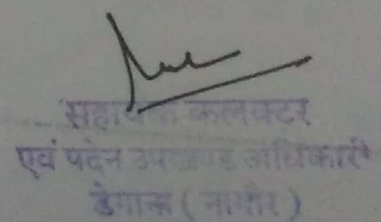 सहायक कलक्टर
एवं पदेन उपखण्ड अधिकारी
डेगाना (नागौर)